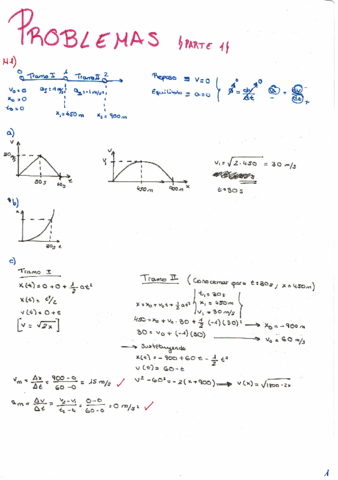 PROBLEMAS (PARTE 1)
N1)
0 Tramo I 1 Tramo II 2
v₀=0 a₁=1 m/s² a₂=-1 m/s²
x₀=0
t₀=0 x₁=450m x₂=900m
Reposo ≡ v=0
Equilibrio → a=0
a)
v
30
30s t
v
v₁
450m 900m x
v₁ = √2·450 = 30 m/s
t=30s
b)
x
30s t
c)
Tramo I
x(t)=0+0+½at²
x(t)= t²/2
v(t)=0+t
[v = √2x]
Tramo II (Conocemos para t=30s, x=450m)
x=x₀+v₀t+½at²
t₁=30s
x₁=450m
v₁=30m/s
450=x₀+v₀·30+½(-1)(30)² → x₀=-900m
30=v₀+(-1)(30) → v₀=60m/s
→ Sustituyendo
x(t)=-900+60t-½t²
v(t)=60-t
v²-60²=-2(x+900) → v(x)=√1800-2x
vm = Δx/Δt = 900-0/60-0 = 15 m/s ✓
am = Δv/Δt = v₂-v₁/t₂-t₁ = 0-0/60-0 = 0 m/s² ✓
1